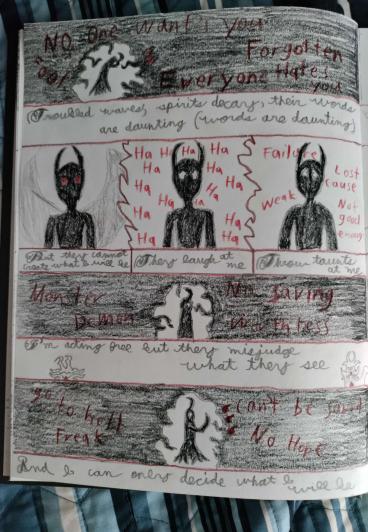 NO One Want's you
Forgotten
Everyone Hates you
(Troubled waves, spirits decay, their words
are daunting (words are daunting)
Ha Ha Ha Ha
Ha Ha
Ha Ha
Ha Ha
Ha Ha
Ha Ha
Failure
Lost
cause
Weak
Not
good
enough
But they cannot
create what I will be
They laugh at
me
Throw taunts
at me
Monster
Demon
No saving
Worthless
I'm acting free but they misjudge
what they see
go to hell
Freak
can't be saved
No Hope
And I can only decide what I
will be